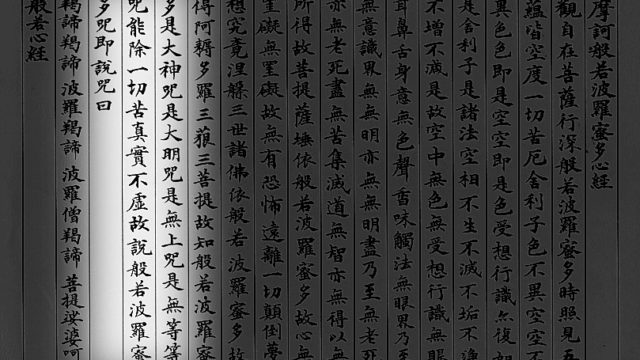 摩訶般若波羅蜜多心經
觀自在菩薩行深般若波羅蜜多時照見
蘊皆空度一切苦厄舍利子色不異空空不
異色色即是空空即是色受想行識亦復如
是舍利子是諸法空相不生不滅不垢不淨
不增不減是故空中無色無受想行識無眼
耳鼻舌身意無色聲香味觸法無眼界乃至
無意識界無無明亦無無明盡乃至無老死
亦無老死盡無苦集滅道無智亦無得以無
所得故菩提薩埵依般若波羅蜜多故心無
罣礙無罣礙故無有恐怖遠離一切顛倒夢
想究竟涅槃三世諸佛依般若波羅蜜多故
得阿耨多羅三藐三菩提故知般若波羅蜜
多是大神咒是大明咒是無上咒是無等等
咒能除一切苦真實不虛故說般若波羅蜜
多咒即說咒曰
羯諦羯諦 波羅羯諦 波羅僧羯諦 菩提娑婆呵
般若心經